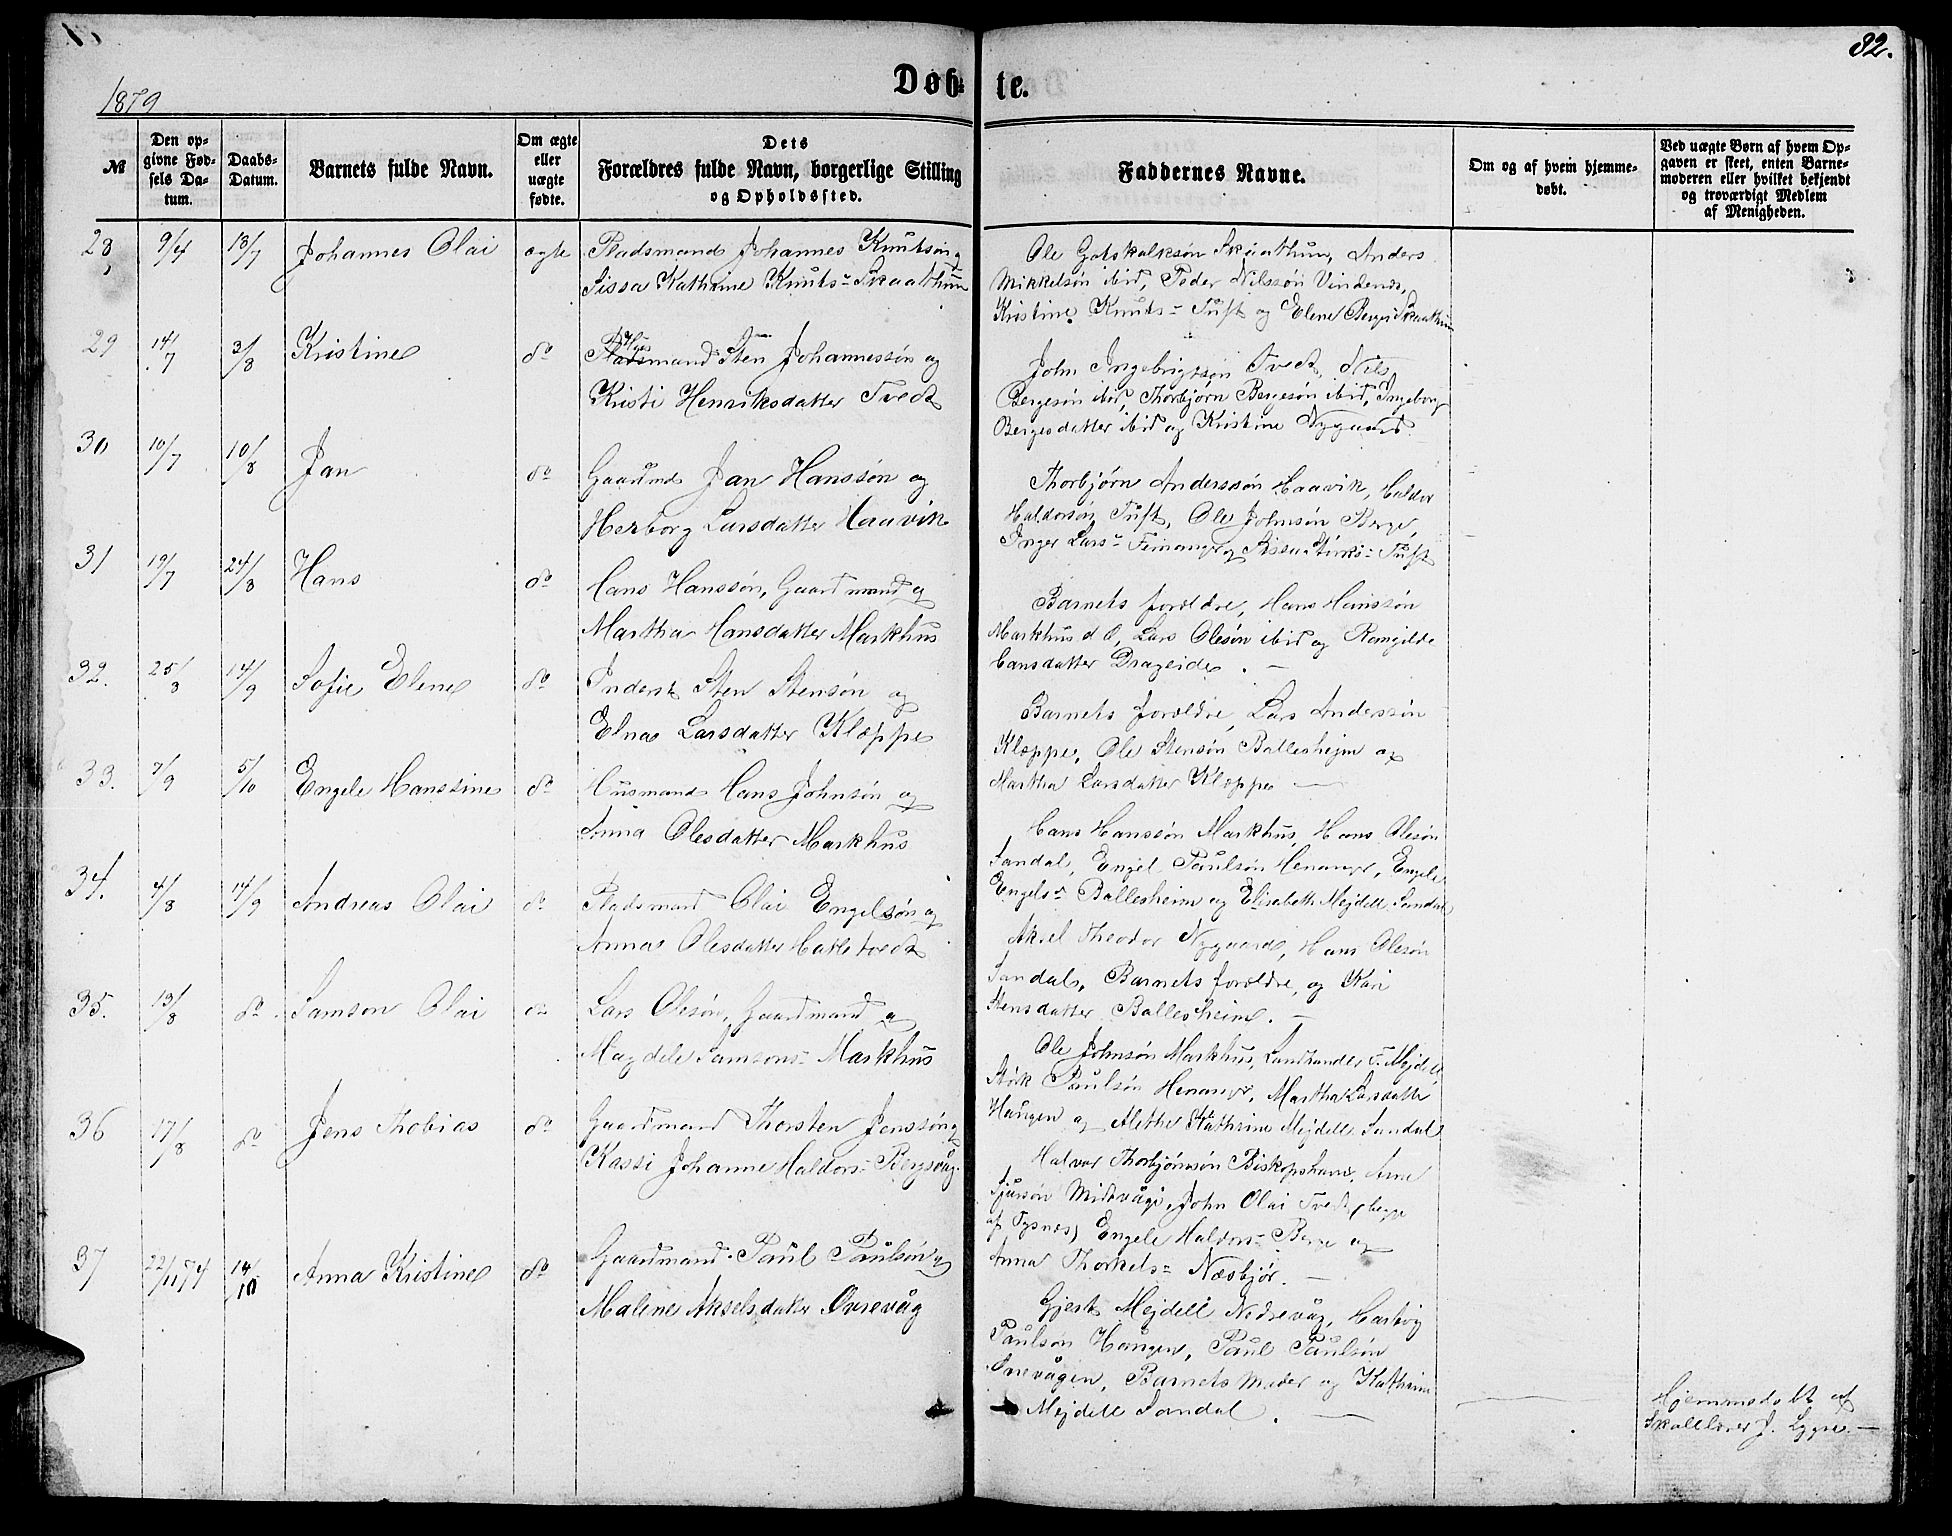 82.
1879
Døb-
te.
№
Den op-
givne Fød-
sels Da-
tum.
Daabs-
Datum.
Barnets fulde Navn.
Om ægte
eller
uægte
fødte.
Dets
Forældres fulde Navn, borgerlige Stilling
og Opholdssted.
Faddernes Navne.
Om og af hvem hjemme-
døbt.
Ved uægte Børn af hvem Op-
gaven er skeet, enten Barne-
moderen eller hvilket bekjendt
og troværdigt Medlem
af Menigheden.
28, 9/4 13/7 Johannes Olai ægte Pladsmand Johannes Knutsøn og
Sissa Kathrine Knuts- Skaathun
Ole Gotskalksøn Skaathun, Anders
Mikkelsøn ibid, Peder Nilssøn Vindenes,
Kristine Knuts- Tuft og Elene Berges Skaathun
29 14/7 3/8 Kristine do Pladsmand Sten Johannessøn og
Kristi Henriksdatter Tvedt
John Ingebrigtsøn Tvedt, Nils
Bergesøn ibid, Thorbjørn Bergesøn ibid, Ingeborg
Bergesdatter ibid og Kristine Nygaard.
30 10/7 10/8 Jan do Gaardmd Jan Hanssøn og
Herborg Larsdatter Haavik
Thorbjørn Anderssøn Haavik, Haldor
Haldorsøn Tuft, Ole Johnsøn Berge,
Inger Lars- Finanger og Sissa Størks- Tuft
31 19/7 24/8 Hans do Hans Hanssøn, Gaardmand og
Martha Hansdatter Markhus
Barnets forældre, Hans Hanssøn
Markhus d. O, Lars Olesøn ibid og Ramgilde
Hansdatter Drageide. —
32. 25/3 14/9 Sofie Elene do Inderst Sten Stensøn og
Elna Larsdatter Kleppe
Barnets forældre, Lars Anderssøn
Kleppe, Ole Stensøn Ballesheim og
Martha Larsdatter Kleppe —
33. 7/9 5/10 Engele Hanssine do Husmand Hans Johnsøn og
Anna Olesdatter Markhus
Hans Hanssøn Markhus, Hans Olesøn
Sandal, Engel Paulsøn Henanger, Engele
Engels- Ballesheim og Elisabeth Mejdell Sandal
34. 4/8 14/9 Andreas Olai do Pladsmand Olai Engelsøn og
Anna Olesdatter Hatletvedt
Aksel Theodor Nygaard, Hans Olesøn
Sandal, Barnets forældre, og Kari
Stensdatter Ballesheim. —
35. 13/8 do Samson Olai do Lars Olesøn, Gaardmand og
Magdele Samsons- Markhus
Ole Johnsøn Markhus, Landhandler T. Mejdell,
Størk Paulsøn Henanger, Martha Larsdatter
Haugen og Alethe Kathrine Mejdell Sandal
36 17/8 do Jens Thobias do Gaardmand Thorsten Jenssøn og
Kassi Johanne Haldors- Bergsvåg.
Halvor Thorbjørnsøn Biskopshavn, Arne
Sjursøn Midtvåge, John Olai Tvedt (begge
af Tysnes) Engele Haldors- Berge og
Anna Thorkels- Næsbjør. —
37 22/11 74 14/10 Anna Kristine do Gaardmand Paul Paulsøn og
Maline Akselsdatter Øvrevåg
Gjert Mejdell Nedrevåg, Hartvig
Paulson Haugen, Paul Paulsøn
Øvrevågen, Barnets Moder og Kathrine
Mejdell Sandal. —
Hjemmedøbt af
Skolelærer J. Lygre. —